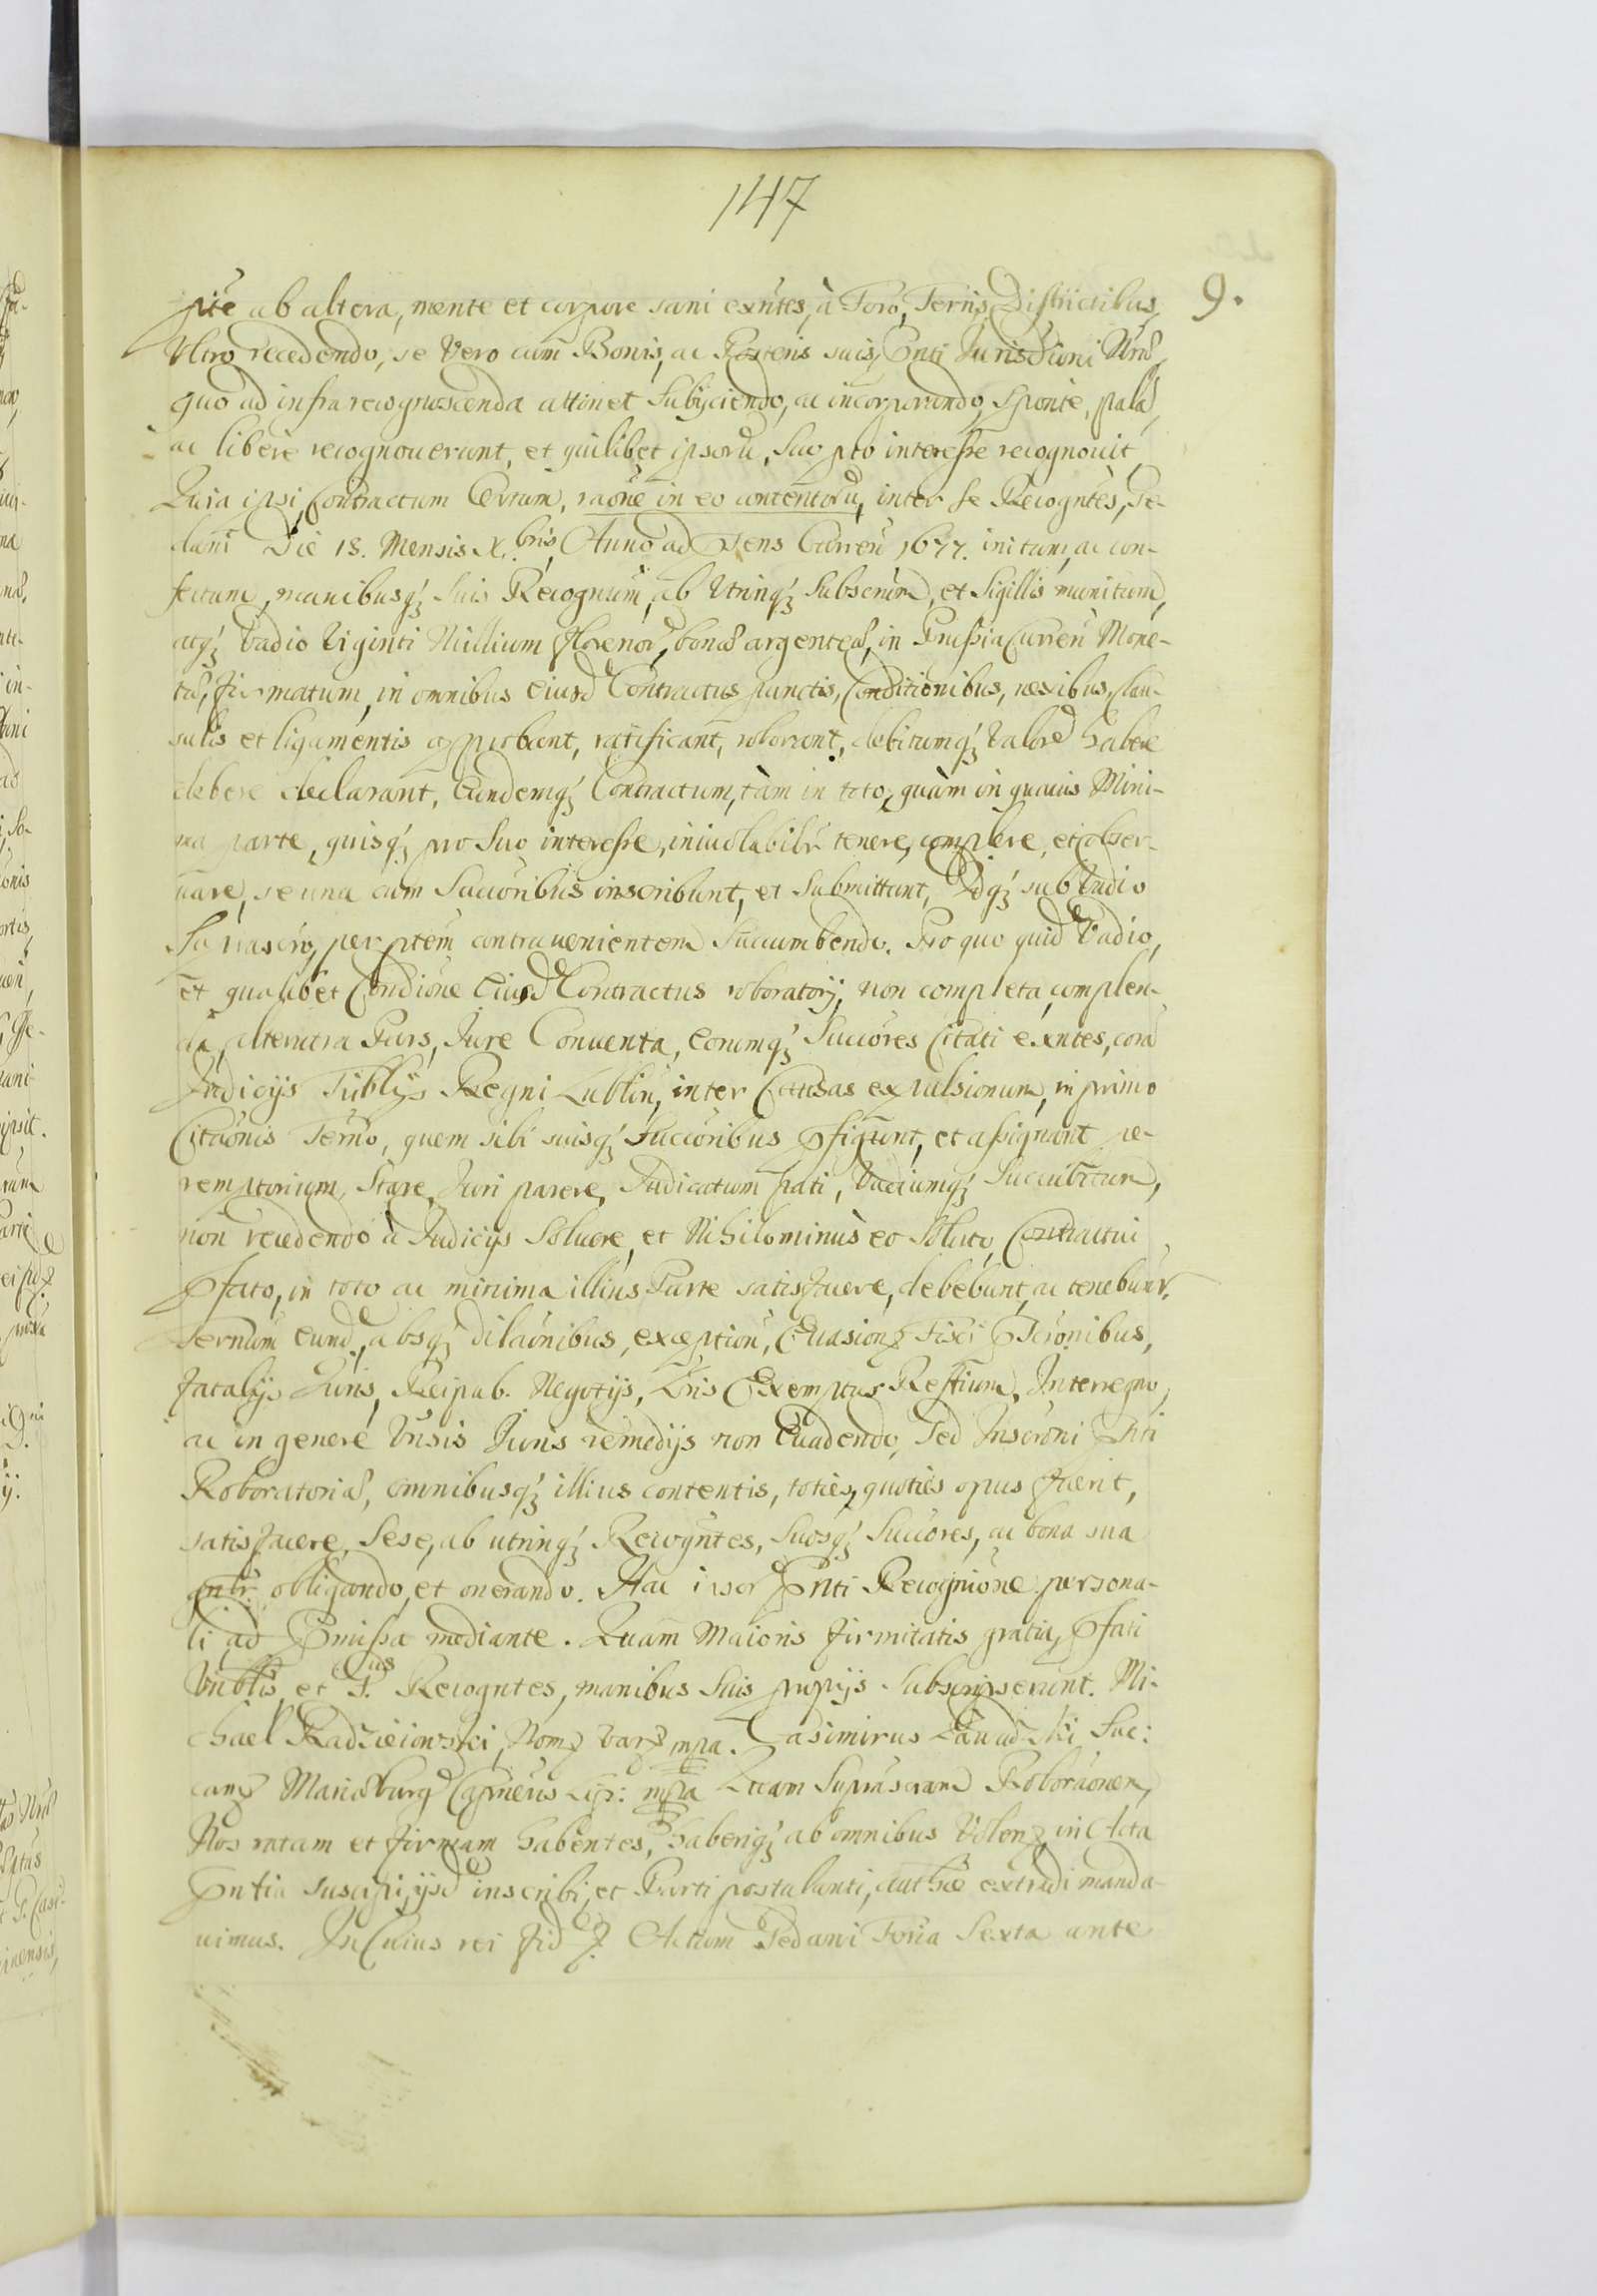 147
9.
pte ab altera, mente et corpore sani exñtes, à Foro, Terris, Districtibus,
Ultro recedendo, se Vero cum Bonis, ac Posteris suis, Pnti Jurisdioni Nrae
quo ad infra recognoscenda attinet Subijciendo, ac incorporando, Sponte, pala,
ac libere recognouerunt, et quilibet ipsoru, Suo pto interesse recognouit
Quia ipsi, Contractum Certum, raone in eo contentoru, inter se Recogntes, Ge-
dani Die 18. Mensis X.bris, Anno ad psens Curren 1677. initum, ac con-
fectum, manibusq; Suis Recognum, ab Utrinq; Subscrum, et Sigillis munitum,
atq; Vadio Viginti Millium florenor, bonae argenteae, in Prussia Curren Mone-
tae, firmatum, in omnibus eiusd Contractus punctis, Conditionibus, nexibus, Clau-
sulis et ligamentis approbant, ratificant, roborant, debitumq; Valore habere
debere declarant, Eundemq; Contractum, tàm in toto, quàm in quauis Mini-
ma parte, quisq; pro Suo interesse, inuiolabilr tenere, complere, et obser-
uare, se una cum Succoribus inscribunt, et Submittunt, Idq; sub Vadio
Suprascro, per ptem contrauenientem Succumbendo. Pro quo quid Vadio,
et qualibet Condione Eiusd Contractus roboratorij, non completa, complen-
da, alterutra Pars, Jure Conuenta, eorumq; Succores Citati exntes, cora
Judicijs Publijs Regni Lublin, inter Causas expulsionum, in primo
Citaonis Termo, quem sibi suisq; Succoribus pfigunt, et assignant pe-
remptorium, Stare, Juri parere, Judicatum pati, Vadiumq; Succubitum,
non recedendo à Judicijs Soluere, et Nihilominùs eo Soluto, Contractui
pfato, in toto ac minima illius Parte satisfacere, debebunt, ac tenebunr.
Sernum eund, absq; dilaonibus, exception, Euasion Fixi
fatalijs Juris, Reipub. Negotijs, Lris Exemptus Restium, Interregno,
ac in genere Vnsis Juris remedijs non Euadendo, Sed Inscroni Pnti
Roboratoriae, omnibusq; illius contentis, toties, quoties opus fuerit,
satisfacere, Sese, ab utrinq; Recogntes, Suosq; Succores, ac bona sua
gnlr. obligando, et onerando. Hac Pnti Recognione persona-
li ad Pmissa mediante. Quam Maioris firmitatis gratia, pfati
et Recogntes, manibus Suis propijs Subscripserunt. Mi-
chael Radzieiowski, Nom mpa. Casimirus Zawadzki Suc:
cam Mariaeburg Capneus mpa Quam Suprascram Roboraonem,
Nos ratam et firmam habentes, haberiq; ab omnibus Volen, in Acta
Pntia suscipi, ijsd inscribi, et Parti postulanti, authce extradi manda-
uimus. In Cuius rei fid. Actum Gedani Feria Sexta ante